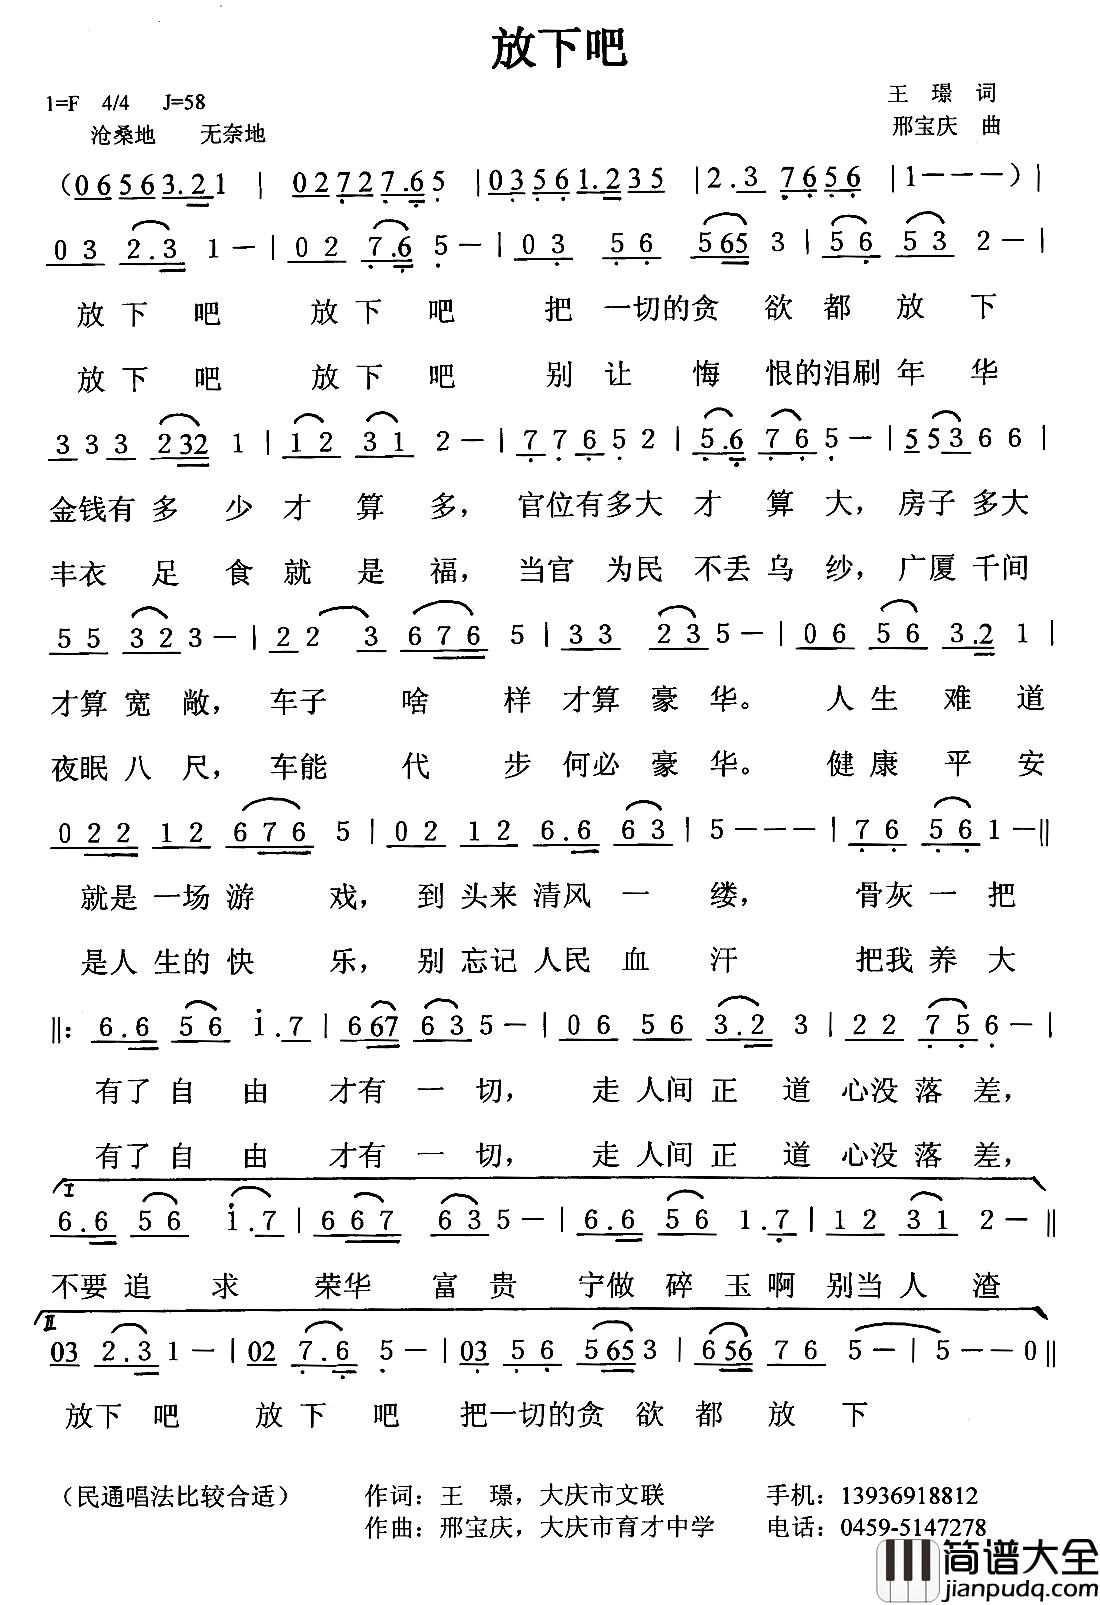 放下吧
1=F 4/4 J=58
王 璟 词
沧桑地 无奈地
邢宝庆 曲
(06563.21 | 02727.65 | 03561.235 | 2.3 7656 | 1--- ) |
03 2.3 1- | 02 7.6 5- | 03 56 565 3 | 56 53 2- |
放下吧 放下吧 把一切的贪欲都放下
放下吧 放下吧 别让悔恨的泪刷年华
333 232 1 | 12 31 2- | 77652 | 5.6 76 5- | 55366 |
金钱有多少才算多，官位有多大才算大，房子多大
丰衣足食就是福，当官为民不丢乌纱，广厦千间
55 323- | 22 3 676 5 | 33 235- | 06 56 3.2 1 |
才算宽敞，车子啥样才算豪华。人生难道
夜眠八尺，车能代步何必豪华。健康平安
022 12 676 5 | 02 12 6.6 63 | 5--- | 76 56 1- ||
就是一场游戏，到头来清风一缕，骨灰一把
是人生的快乐，别忘记人民血汗 把我养大
||: 6.6 56 i.7 | 667 635- | 06 56 3.2 3 | 22 756- |
有了自由才有一切，走人间正道心没落差，
有了自由才有一切，走人间正道心没落差，
I
6.6 56 i.7 | 667 635- | 6.6 56 1.7 | 12 31 2- ||
不要追求荣华富贵 宁做碎玉啊别当人渣
II
03 2.3 1- | 02 7.6 5- | 03 56 5653 | 656 76 5- | 5--0 ||
放下吧 放下吧 把一切的贪欲都放下
（民通唱法比较合适） 作词：王 璟，大庆市文联 手机：13936918812
作曲：邢宝庆，大庆市育才中学 电话：0459-5147278
简谱大全
jianpudq.com